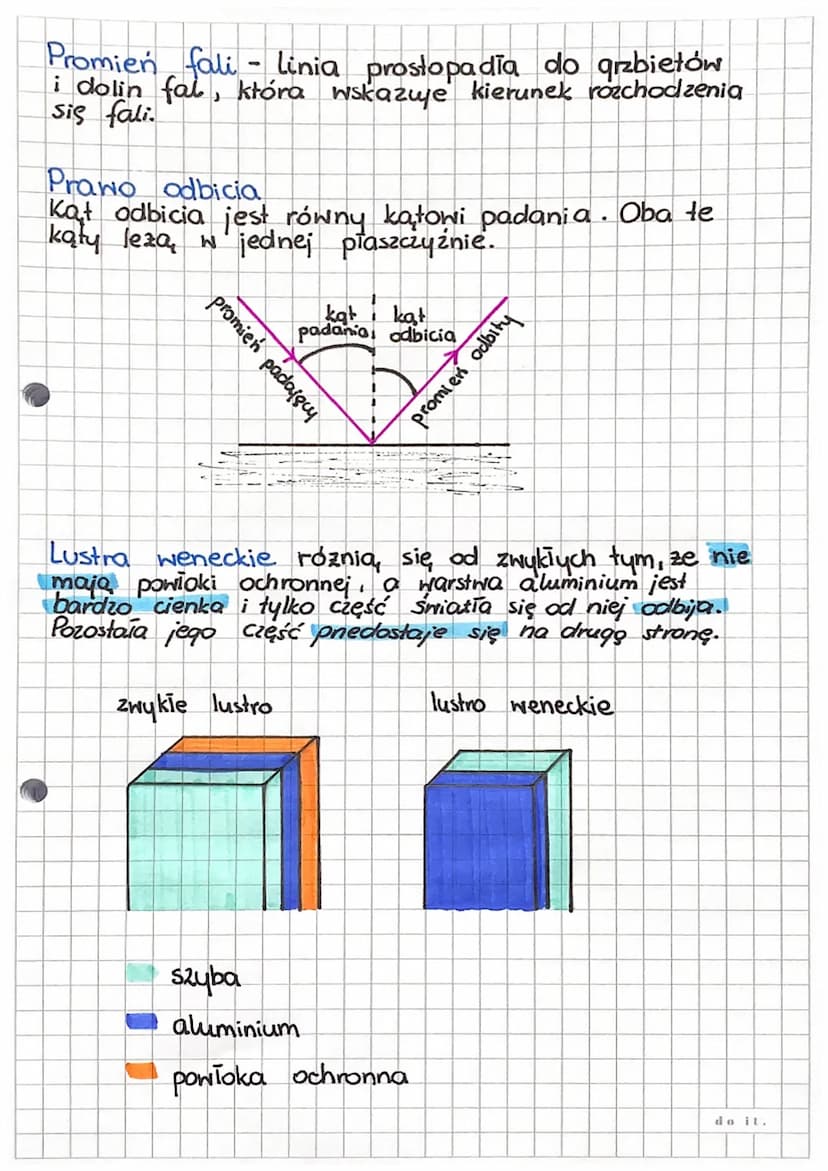 Promień fali – linia prostopadła do grzbietów
i dolin fal, która wskazuje kierunek rozchodzenia
się fali.
Prawo odbicia
Kąt odbicia jest równy kątowi padania. Oba te
kąty leżą w jednej płaszczyźnie.
kąt padania
kąt odbicia
promień padający
promień odbity
Lustra weneckie różnią się od zwykłych tym, że nie
mają powłoki ochronnej, a warstwa aluminium jest
bardzo cienka i tylko część światła się od niej odbija.
Pozostała jego część przedostaje się na drugą stronę.
zwykłe lustro
lustro weneckie
szyba
aluminium
powłoka ochronna
do it.